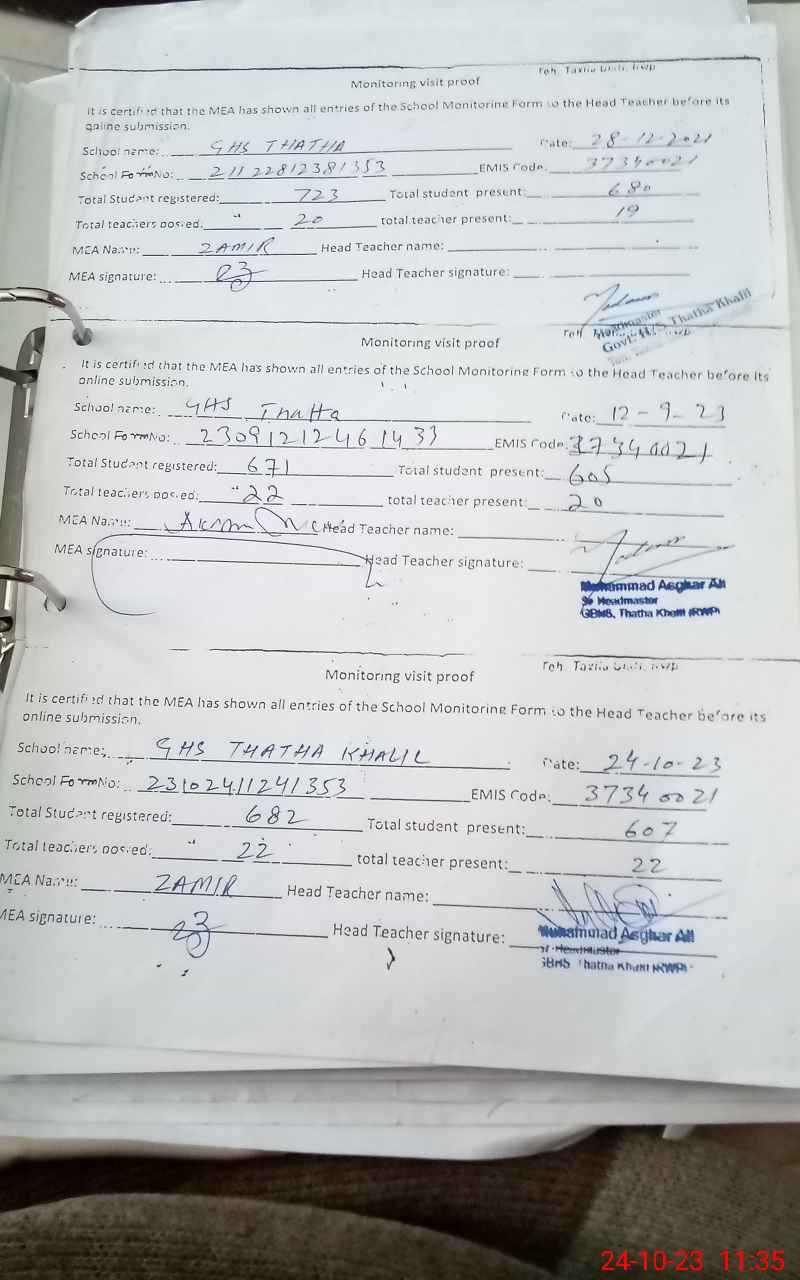 Teh. Taxila Distt. RWP
Monitoring visit proof
It is certified that the MEA has shown all entries of the School Monitoring Form to the Head Teacher before its
online submission.
School name: GHS THATHA Date: 28-12-2021
School Form No: 21122812381353 EMIS Code: 37340021
Total Student registered: 723 Total student present: 680
Total teachers posted: 20 total teacher present: 19
MEA Name: ZAMIR Head Teacher name:
MEA signature: Head Teacher signature:
Headmaster
Govt. H/S Thatha Khalil
Teh. RWP
Monitoring visit proof
It is certified that the MEA has shown all entries of the School Monitoring Form to the Head Teacher before its
online submission.
School name: GHS Thatha Date: 12-9-23
School Form No: 23091212461433 EMIS Code: 37340021
Total Student registered: 671 Total student present: 605
Total teachers posted: " 22 total teacher present: 20
MEA Name: Head Teacher name:
MEA signature: Head Teacher signature:
Muhammad Asghar Ali
Sr Headmaster
GBHS, Thatha Khalil (RWP)
Teh. Taxila Distt. RWP
Monitoring visit proof
It is certified that the MEA has shown all entries of the School Monitoring Form to the Head Teacher before its
online submission.
School name: GHS THATHA KHALIL Date: 24-10-23
School Form No: 23102411241353 EMIS Code: 37340021
Total Student registered: 682 Total student present: 607
Total teachers posted: " 22 total teacher present: 22
MEA Name: ZAMIR Head Teacher name:
MEA signature: Head Teacher signature:
Muhammad Asghar Ali
Sr Headmaster
GBHS Thatha Khalil (RWP)
24-10-23 11:35